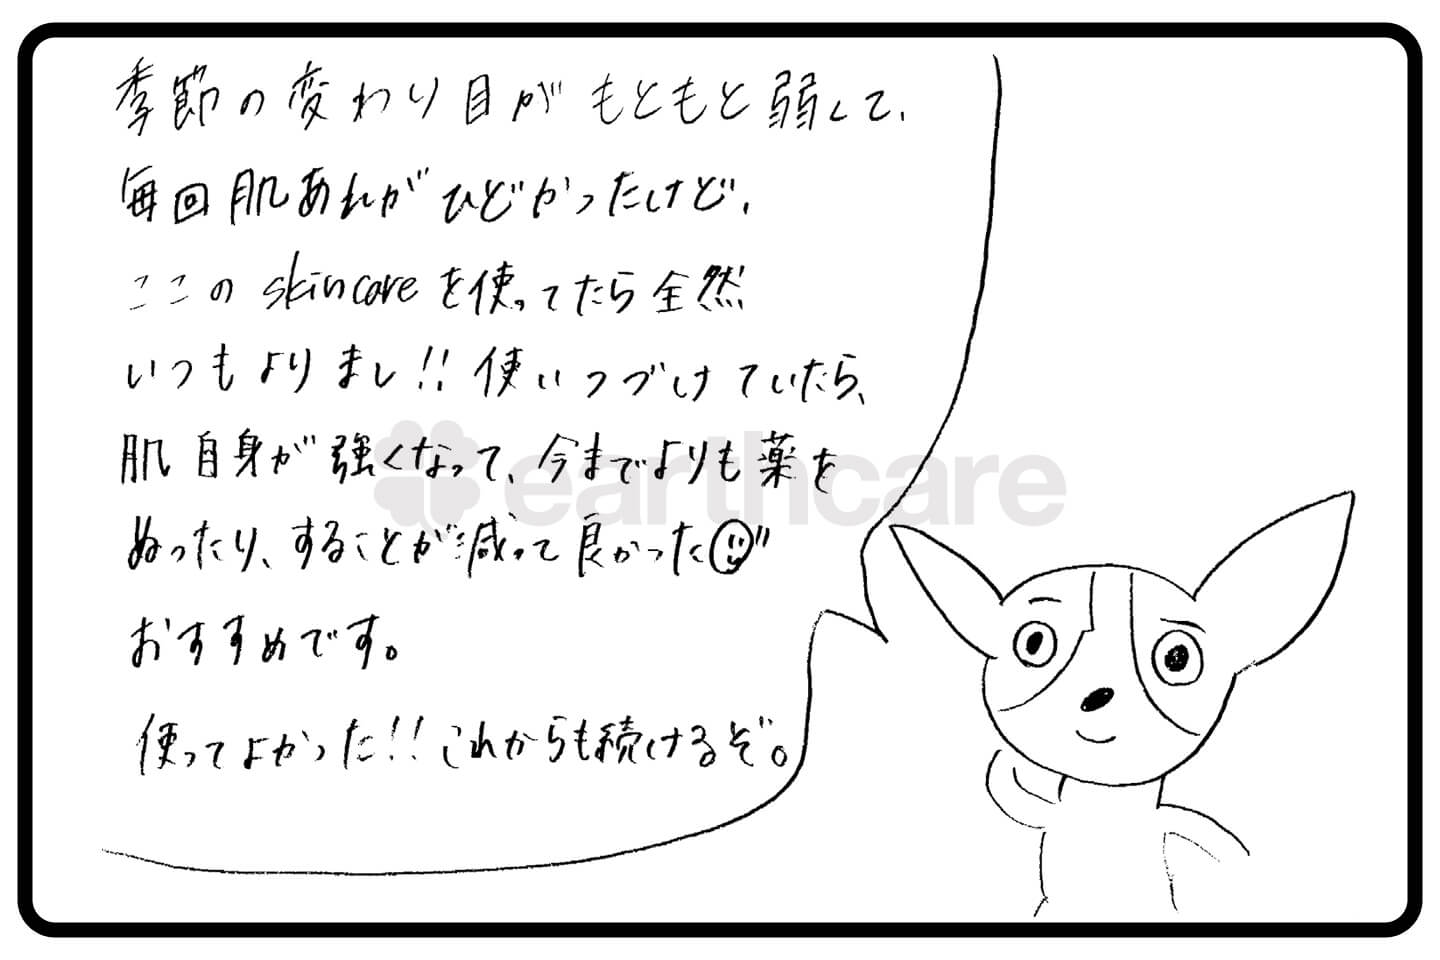 季節の変わり目がもともと弱くて、
毎回肌あれがひどかったけど、
ここのskincareを使ってたら全然
いつもよりまし!!使いつづけていたら、
肌自身が強くなって、今までよりも薬を
ぬったり、することが減って良かった
おすすめです。
使ってよかった!!これからも続けるぞ。
earthcare